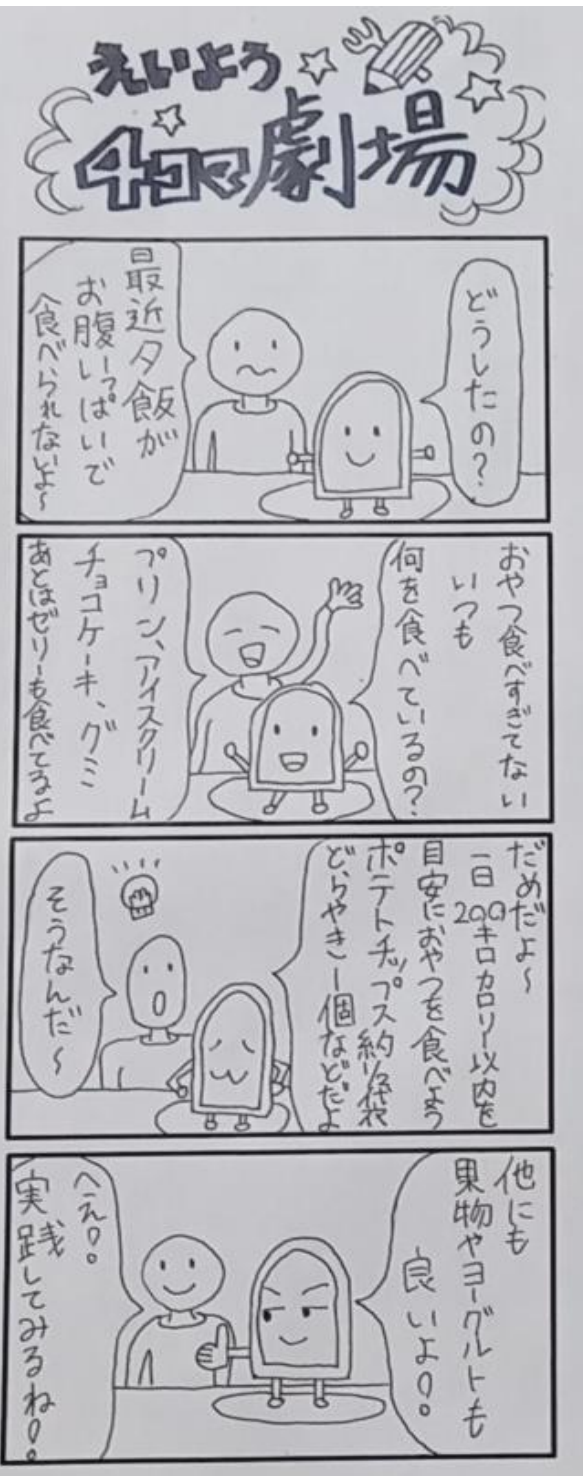 えいよう
4コマ劇場
どうしたの?
最近夕飯が
お腹いっぱいで
食べられないよ~
おやつ食べすぎてない
いつも
何を食べているの?
プリン、アイスクリーム
チョコケーキ、グミ
あとはゼリーも食べてるよ
だめだよ~
一日200キロカロリー以内を
目安におやつを食べよう
ポテトチップス約½袋
どらやき一個などだよ
そうなんだ~
他にも
果物やヨーグルトも
良いよ!
へえ!
実践してみるね!